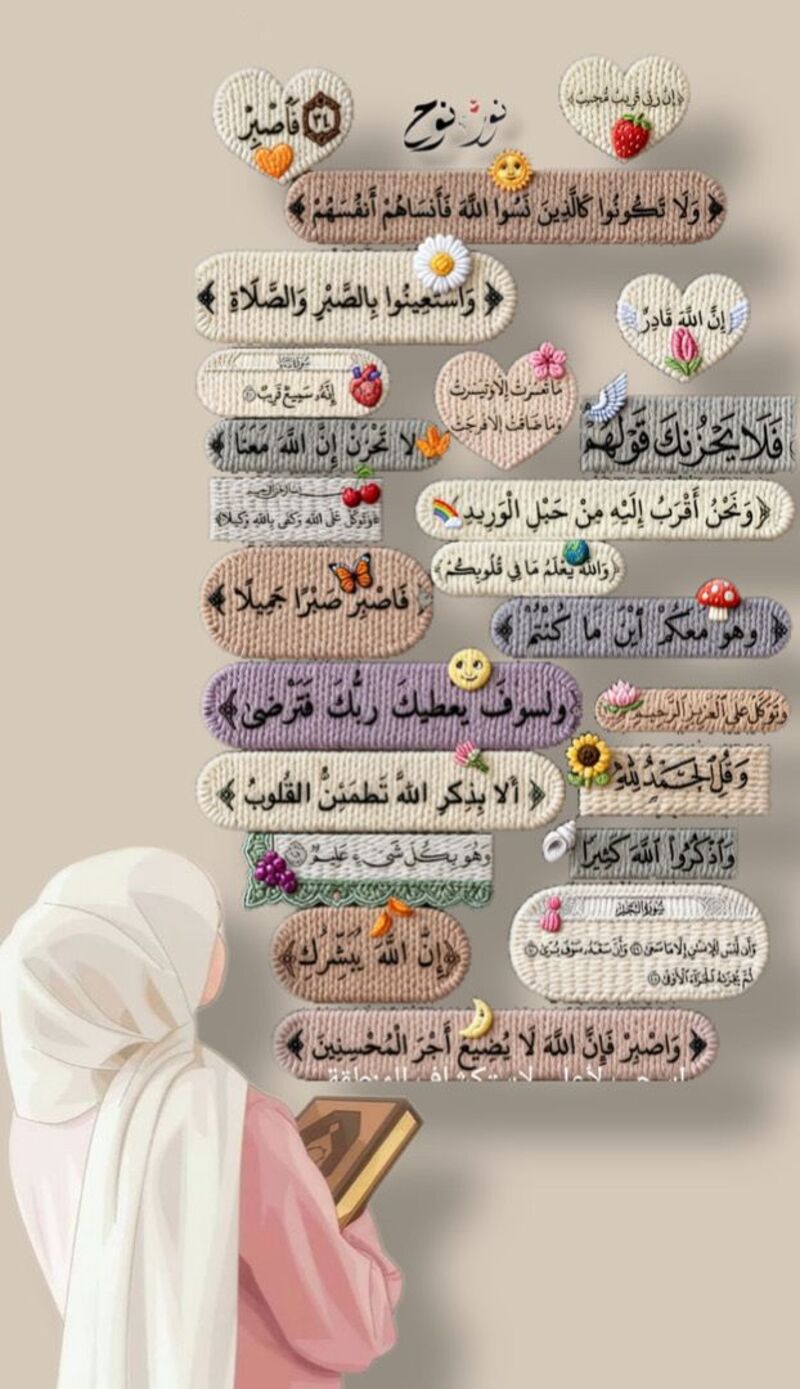 فَاصْبِرْ ٣٤
نور نوح
﴿إِنَّ رَبِّي قَرِيبٌ مُجِيبٌ﴾
﴿ وَلَا تَكُونُوا كَالَّذِينَ نَسُوا اللَّهَ فَأَنسَاهُمْ أَنفُسَهُمْ ﴾
﴿ وَاسْتَعِينُوا بِالصَّبْرِ وَالصَّلَاةِ ﴾
إِنَّ اللَّهَ قَادِرٌ
إِنَّهُ سَمِيعٌ قَرِيبٌ
مَا تَعَسَّرَتْ إِلَّا وَتَيَسَّرَتْ
وَمَا ضَاقَتْ إِلَّا فُرِجَتْ
فَلَا يَحْزُنكَ قَوْلُهُمْ
﴿ لا تَحْزَنْ إِنَّ اللَّهَ مَعَنَا
﴿وَنَحْنُ أَقْرَبُ إِلَيْهِ مِنْ حَبْلِ الْوَرِيدِ﴾
﴿وَتَوَكَّلْ عَلَى اللَّهِ وَكَفَى بِاللَّهِ وَكِيلًا﴾
﴿وَاللَّهُ يَعْلَمُ مَا فِي قُلُوبِكُمْ﴾
﴿ فَاصْبِرْ صَبْرًا جَمِيلًا ﴾
﴿ وَهُوَ مَعَكُمْ أَيْنَ مَا كُنْتُمْ ﴾
﴿ ولسوفَ يُعطيكَ ربُّكَ فَتَرْضىٰ ﴾
وَتَوَكَّلْ عَلَى ٱلْعَزِيزِ ٱلرَّحِيمِ
﴿ أَلا بِذِكرِ اللهَّ تَطمَئِنُّ القُلوبُ ﴾
وَقُلِ ٱلْحَمْدُ لِلَّهِ
وَهُوَ بِكُلِّ شَيْءٍ عَلِيمٌ
وَٱذْكُرُوا۟ ٱللَّهَ كَثِيرًا
﴿إِنَّ اللَّهَ يُبَشِّرُكِ﴾
سُورَةُ النَّجْمِ
وَأَن لَّيْسَ لِلْإِنسَٰنِ إِلَّا مَا سَعَىٰ وَأَنَّ سَعْيَهُۥ سَوْفَ يُرَىٰ
ثُمَّ يُجْزَىٰهُ ٱلْجَزَآءَ ٱلْأَوْفَىٰ
﴿ وَاصْبِرْ فَإِنَّ اللَّهَ لَا يُضِيعُ أَجْرَ الْمُحْسِنِينَ ﴾